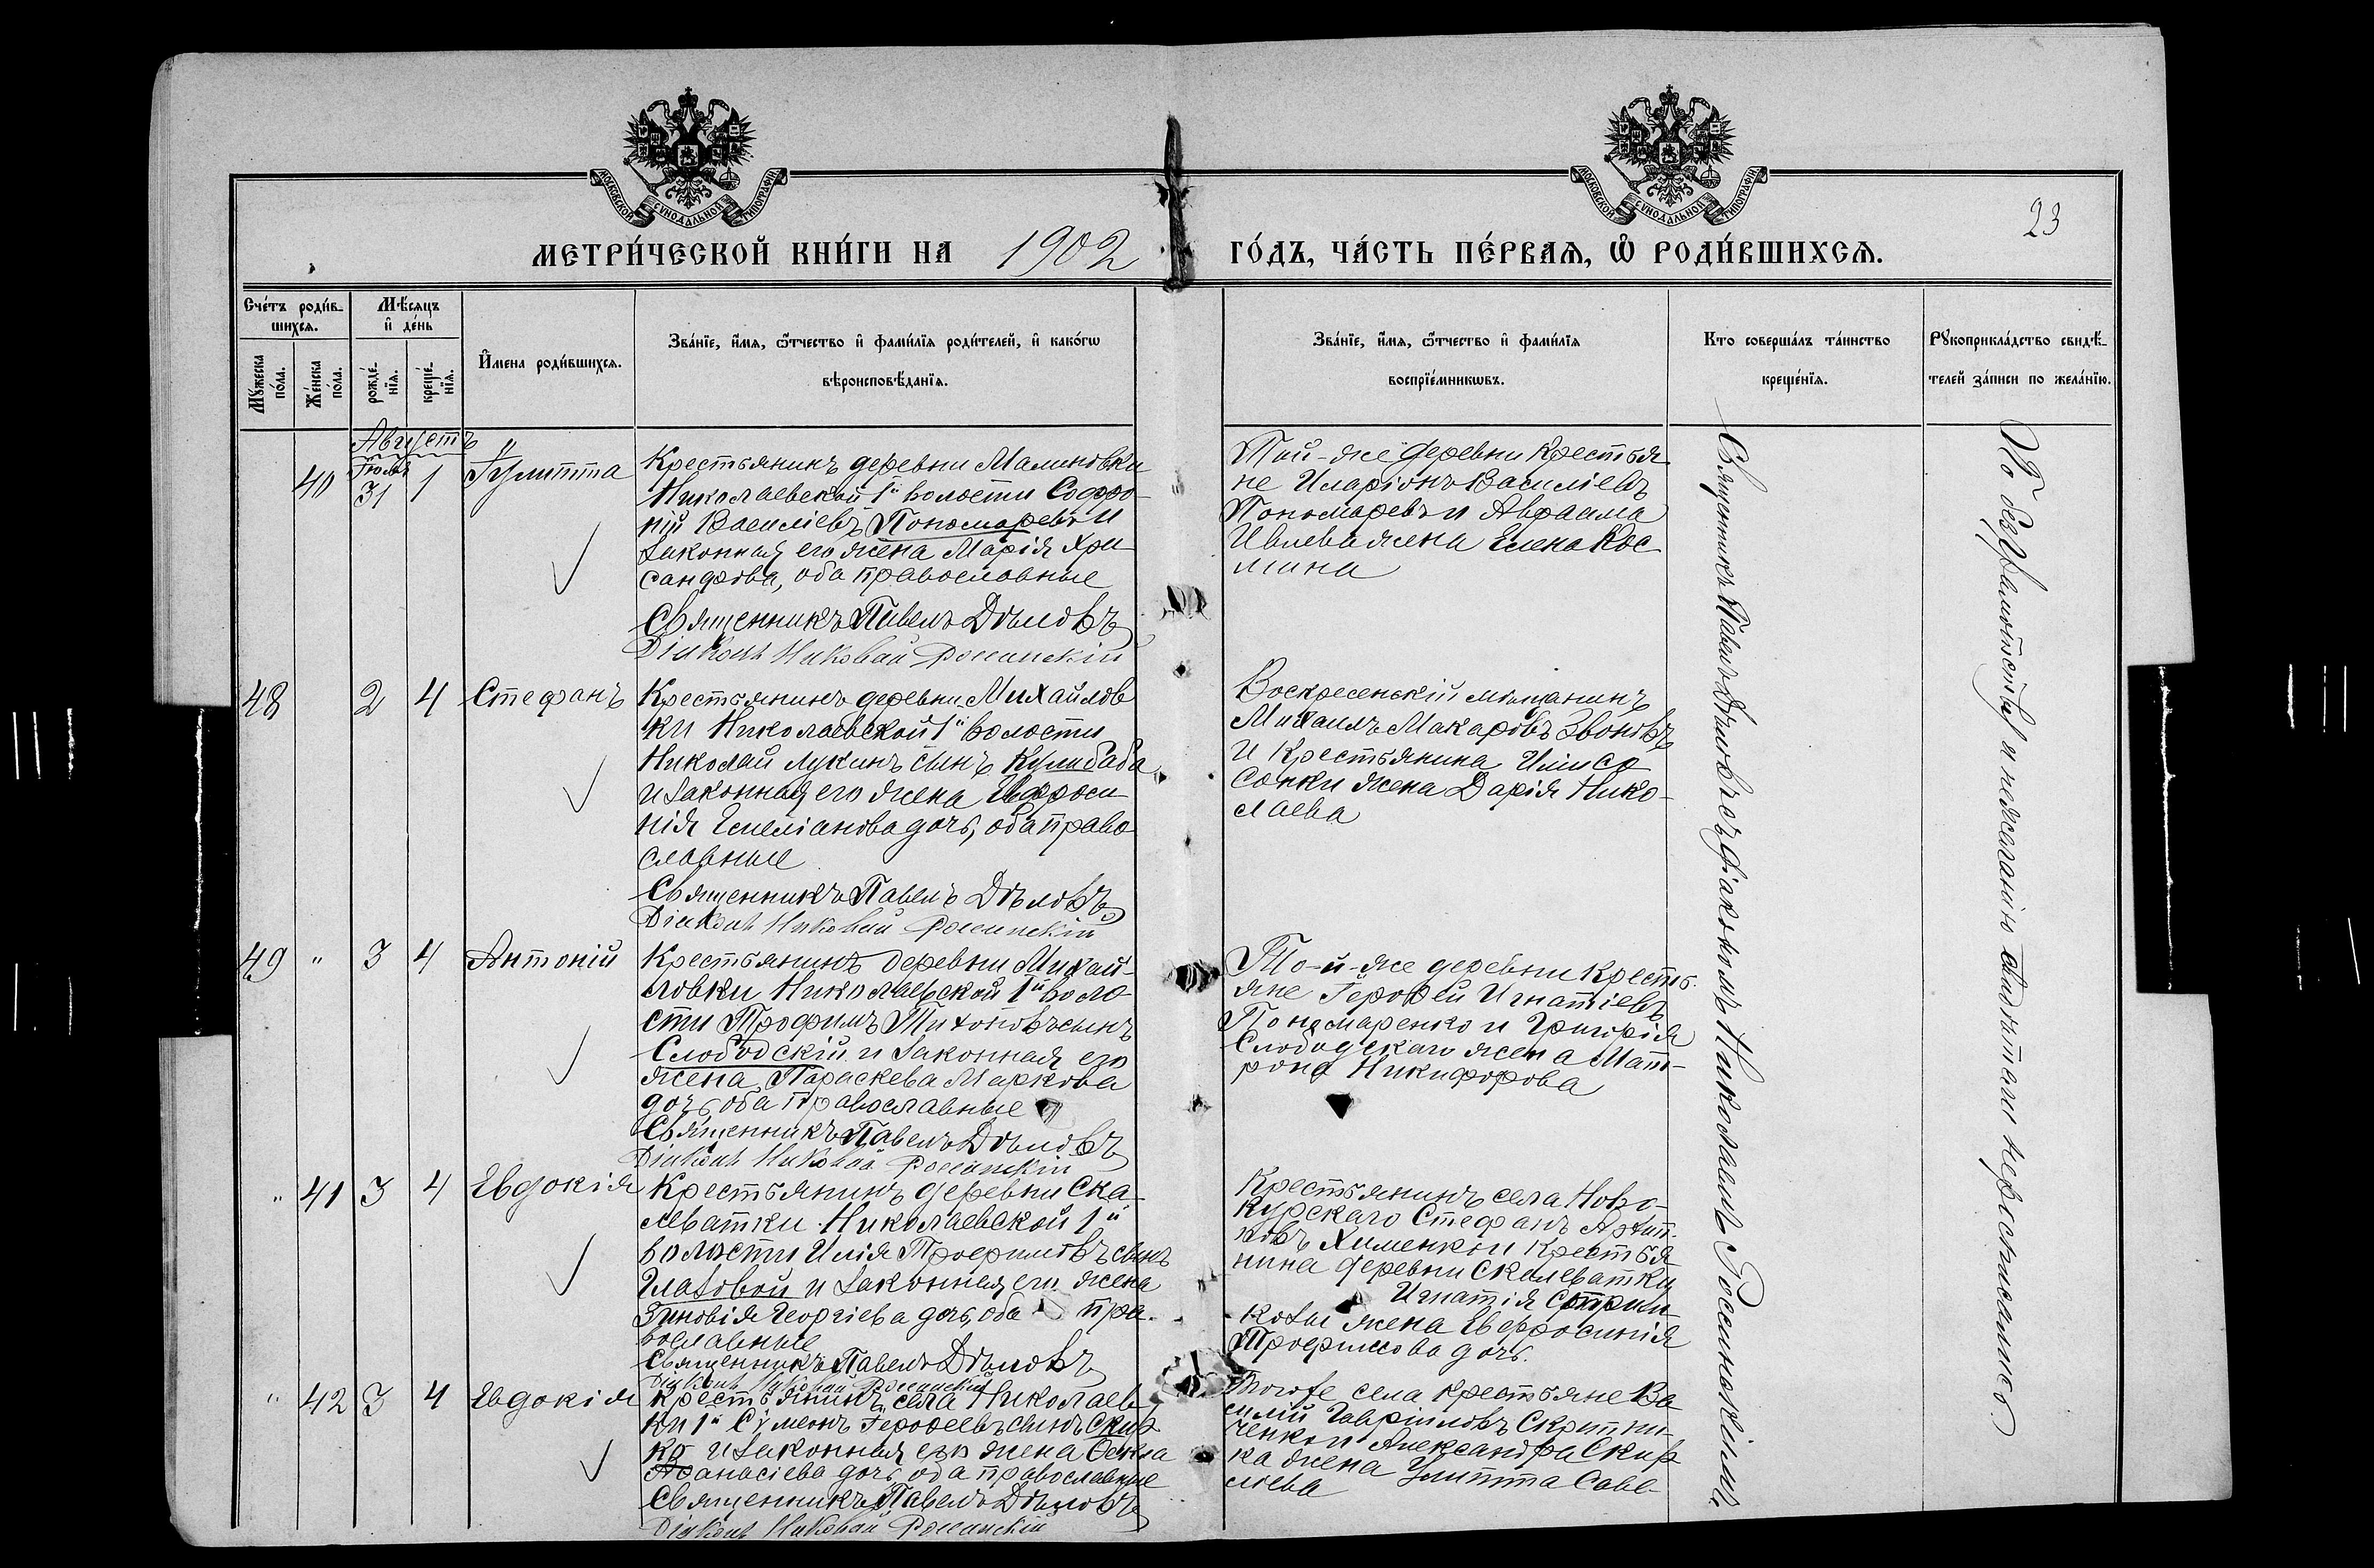 МОСКОВСКОЙ СѴНОДАЛЬНОЙ ТИПОГРАФІИ
МОСКОВСКОЙ СѴНОДАЛЬНОЙ ТИПОГРАФІИ
23
МЕТРИ́ЧЕСКОЙ КНИ́ГИ НА 1902 ГО́ДЪ, ЧА́СТЬ ПЕ́РВАѦ, Ѡ҆ РОДИ́ВШИХСѦ.
Сче́тъ роди́в-
шихсѧ.
Мꙋ́жеска
по́ла.
Же́нска
по́ла.
Мѣ́сѧцъ
и҆ де́нь
рожде́-
нїѧ.
креще́-
нїѧ.
И҆мена роди́вшихсѧ.
Зва́нїе, и҆́мѧ, ѻ҆́тчество и҆ фами́лїѧ роди́телей, и҆ како́гѡ
вѣроисповѣ́данїѧ.
Зва́нїе, и҆́мѧ, ѻ҆́тчество и҆ фами́лїѧ
воспрїе́мникѡвъ.
Кто соверша́лъ та́инство
креще́нїѧ.
Рꙋкоприкла́дство свидѣ́-
телей за́писи по жела́нїю.
Августъ
40 Іюль 31 1 Іулитта
Крестьянинъ деревни Малиновки
Николаевской 1й волости Софро-
ній Василіевъ Пономаревъ и
законная его жена Марія Хри-
санфова, оба православные
Священникъ Павелъ Дѣловъ
Діаконъ Николай Россинскій
Той-же деревни крестья
не Иларіонъ Василіевъ
Пономаревъ и Авраама
Ивлева жена Елена Кос-
мина
48 2 4 Стефанъ
Крестьянинъ деревни Михайлов
ки Николаевской 1й волости
Николай Лукинъ сынъ Кулибаба
и законная его жена Евфроси-
нія Емеліанова дочь, оба право
славные
Священникъ Павелъ Дѣловъ
Діаконъ Николай Россинскій
Воскресенскій мѣщанинъ
Михаилъ Макаровъ Звоновъ
и крестьянина Иліи Со
сонки жена Дарія Нико-
лаева
49 " 3 4 Антоній
Крестьянинъ деревни Михай-
ловки Николаевской 1й воло-
сти Трофимъ Тихоновъ сынъ
Слободскій и законная его
жена Параскева Маркова
дочь, оба православные
Священникъ Павелъ Дѣловъ
Діаконъ Николай Россинскій
То-й-же деревни кресть-
яне Герофей Игнатіевъ
Пономаренко и Григорія
Слободскаго жена Мат-
рона Никифорова
" 41 3 4 Евдокія
Крестьянинъ деревни Ска-
леватки Николаевской 1й
волости Илія Трофимовъ сынъ
Глазовой и законная его жена
Зиновія Георгіева дочь, оба пра-
вославные
Священникъ Павелъ Дѣловъ
Діаконъ Николай Россинскій
Крестьянинъ села Ново-
курскаго Стефанъ
Хименко и крестья
нина деревни Скалеватки
Игнатія
жена Евфросинія
Трофимова дочь.
" 42 3 4 Евдокія
Крестьянинъ села Николаев-
ки 1й Сѵмеонъ Герофеевъ сынъ Скир
ка и законная его жена Фекла
Афанасіева дочь, оба православные
Священникъ Павелъ Дѣловъ
Діаконъ Николай Россинскій
Тогоже села крестьяне Ва
силій Гавріиловъ Скрипни-
ченко и Александра Скир
ка жена Улитта Саве-
ліева
Священникъ Павелъ Дѣловъ съ діакономъ Николаемъ Россинскимъ.
По безграмотству и нежеланію свидѣтели не росписались